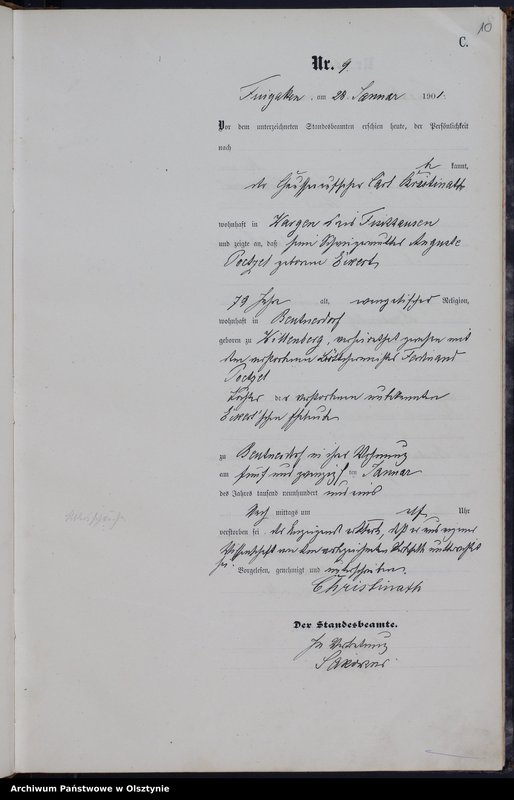 10
C.
Nr. 9.
am 28. Januar 1901.
Vor dem unterzeichneten Standesbeamten erschien heute, der Persönlichkeit
nach
be kannt,
der Carl
wohnhaft in Wargen Kreis Fischhausen
und zeigte an, daß seine Schwiegermutter Auguste
geborene Eikert,
79 Jahre alt, evangelischer Religion,
wohnhaft in
geboren zu Wittenberg, verheirathet gewesen mit
dem verstorbenen Ferdinand
Tochter der verstorbenen unbekannten
Eikert'schen Eheleute
zu in ihrer Wohnung
am fünf und zwanzigsten Januar
des Jahres tausend neunhundert und eins
Nach mittags um elf Uhr
verstorben sei. Der Anzeigende erklärte, daß er aus eigener
Wissenschaft von dem Sterbefalle unterrichtet
sei. Vorgelesen, genehmigt und unterschrieben.
Christinath
Der Standesbeamte.
In Vertretung
Archiwum Państwowe w Olsztynie